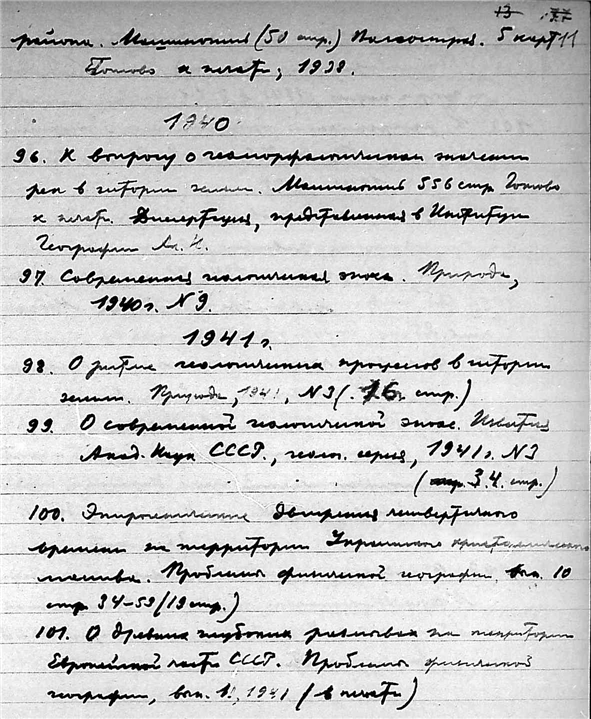 13
района. Машинопись (50 стр.) Палеогеогр. 5 карт 11
Готово к печати, 1938.
1940
96. К вопросу о геоморфологическом значении
рек в истории земли. Машинопись 556 стр Готово
к печати. Диссертация, представленная в Институт
Географии Ак. Н.
97. Современная геологическая эпоха. Природа,
1940 г. N 9.
1941 г.
98. О ритме геологических процессов в истории
земли. Природа, 1941, N3 (. 16 стр.)
99. О современной геологической эпохе. Известия
Акад. Наук СССР., геол. серия, 1941 г. N3
(3.4. стр.)
100. Эпирогенические движения четвертичного
времени на территории Украинского кристаллического
массива. Проблемы физической географии, вып. 10
стр 34-53 (19 стр.)
101. О древних глубоких размывах на территории
Европейской части СССР. Проблемы физической
географии, вып. 11, 1941 (в печати)